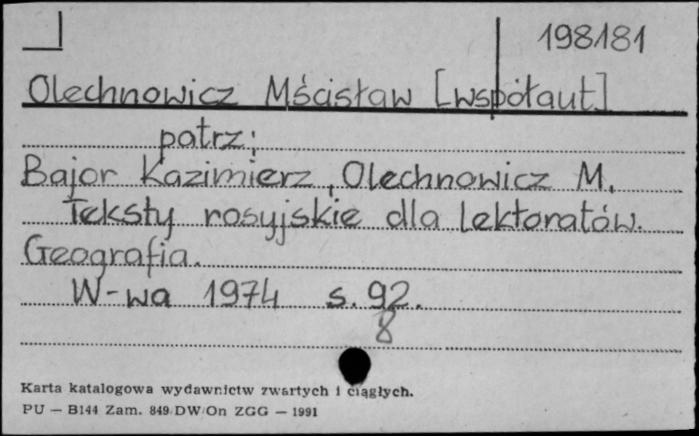 198181
Olechnowicz Mścisław [współaut]
patrz:
Bajor Kazimierz, Olechnowicz M.
Teksty rosyjskie dla lektoratów.
Geografia.
W-wa 1974 s. 92.
8
Karta katalogowa wydawnictw zwartych i ciągłych.
PU — B144 Zam. 849/DW/On ZGG — 1991